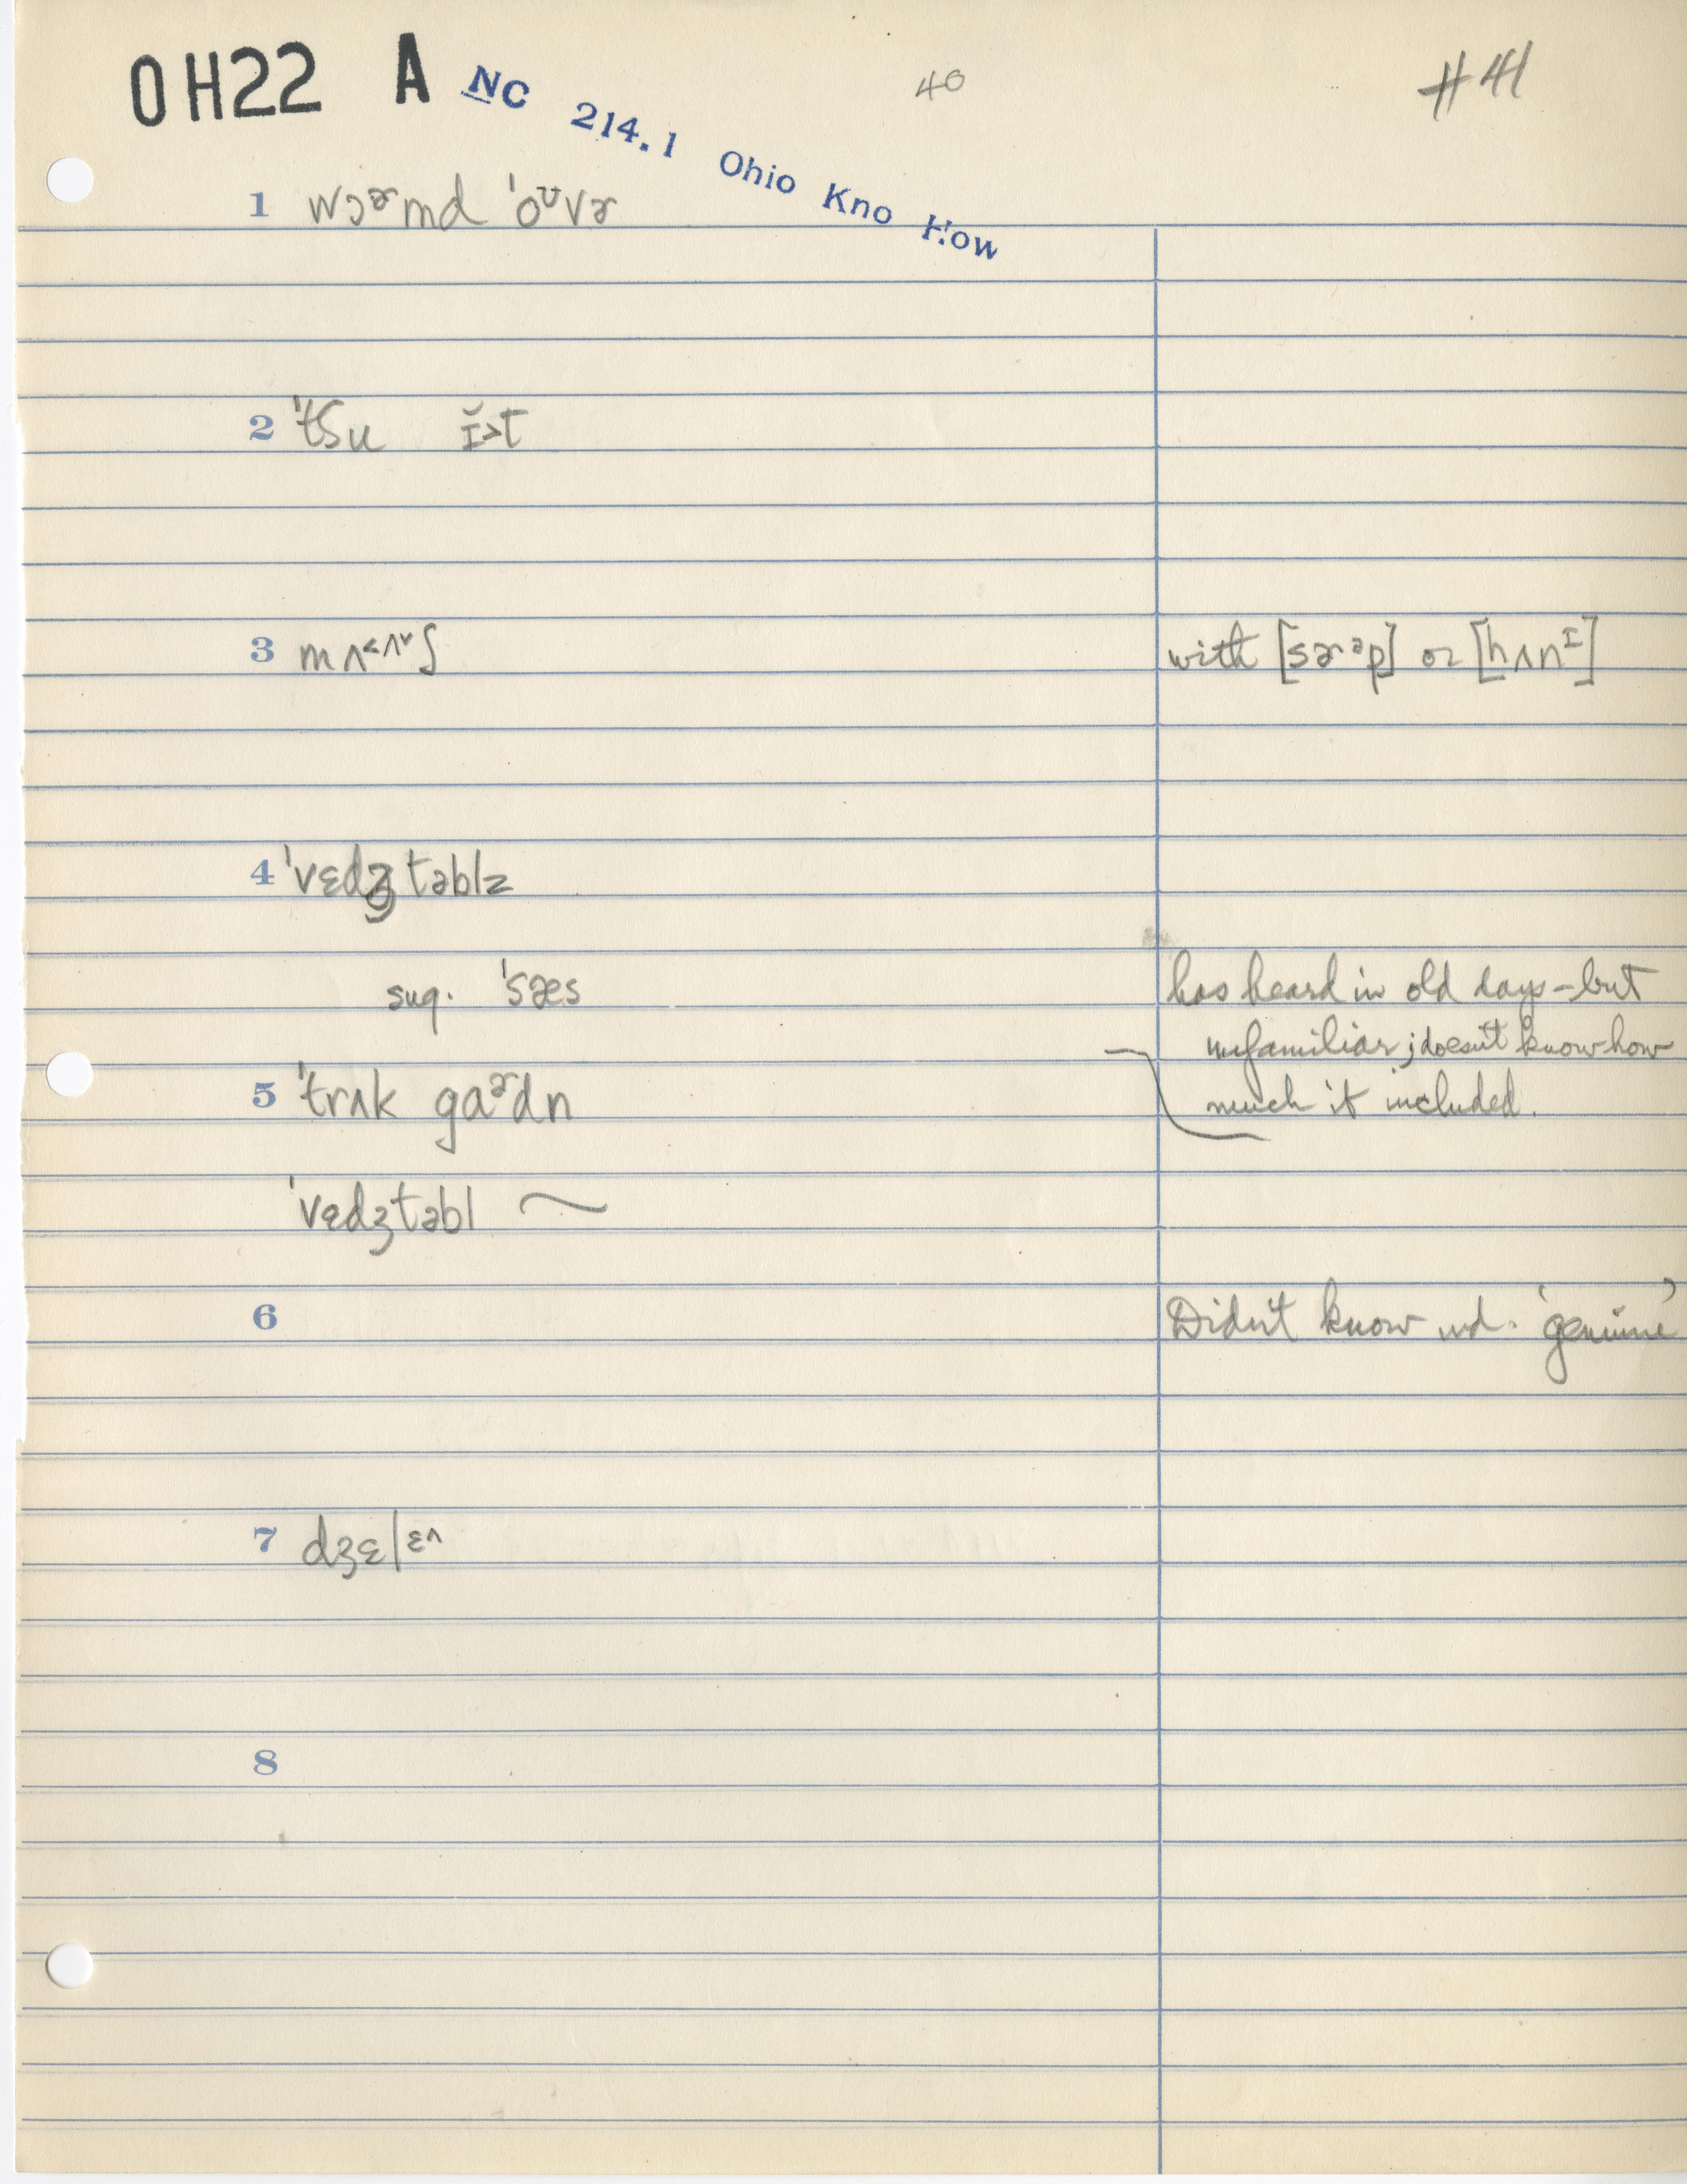 OH22 A NC 214.1 Ohio Kno How 40 #41
1 wɔɚmd ˈoᶷvɚ
2 ˈtʃu ɪ̆>t
3 mʌ<ʌˇʃ with [sɚᵊp] or [hʌnᴵ]
4 ˈvɛdʒtəblz
sug. ˈsæs has heard in old days – but
unfamiliar; doesn't know how
5 ˈtrʌk gaᵊ˞dn much it included.
ˈvɛdʒtəbl ⁓
6 Didn't know wd. 'genuine'
7 dʒɛlᵋ^
8